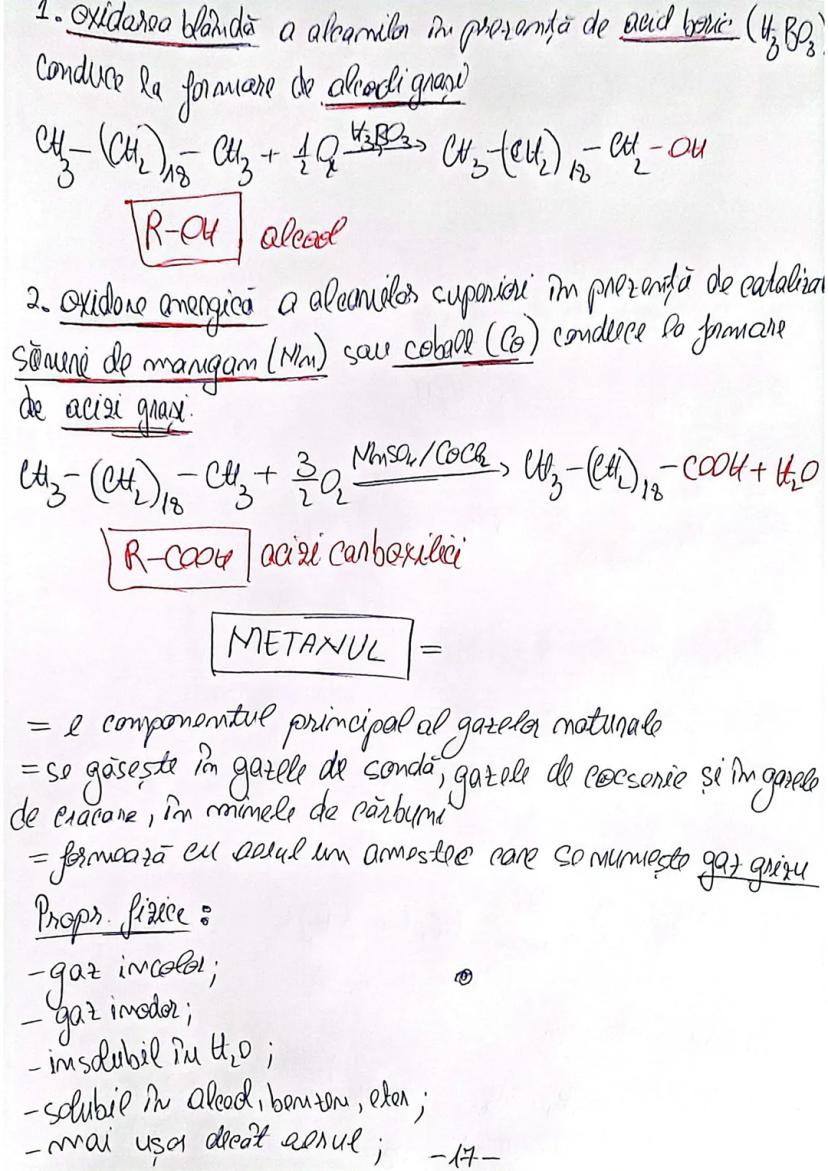 1. oxidarea blândă a alcanilor în prezență de acid boric (H₃BO₃)
conduce la formare de alcooli grași
CH₃-(CH₂)₁₈-CH₃ + 1/2 O₂ H₃BO₃→ CH₃-(CH₂)₁₈-CH₂-OH
R-OH alcool
2. oxidare energică a alcanilor superiori în prezență de cataliza
săruri de mangan (Mn) sau cobalt (Co) conduce la formare
de acizi grași.
CH₃-(CH₂)₁₈-CH₃ + 3/2 O₂ MnSO₄/CoCl₂→ CH₃-(CH₂)₁₈-COOH + H₂O
R-COOH acizi carboxilici
METANUL =
= e componentul principal al gazelor naturale
= se găsește în gazele de sondă, gazele de cocserie și în gazele
de cracare, în minele de cărbuni
= formează cu aerul un amestec care se numește gaz grizu
Propr. fizice:
- gaz incolor;
- gaz inodor;
- insolubil în H₂O;
- solubil în alcool, benzen, eter;
- mai ușor decât aerul;
-17-